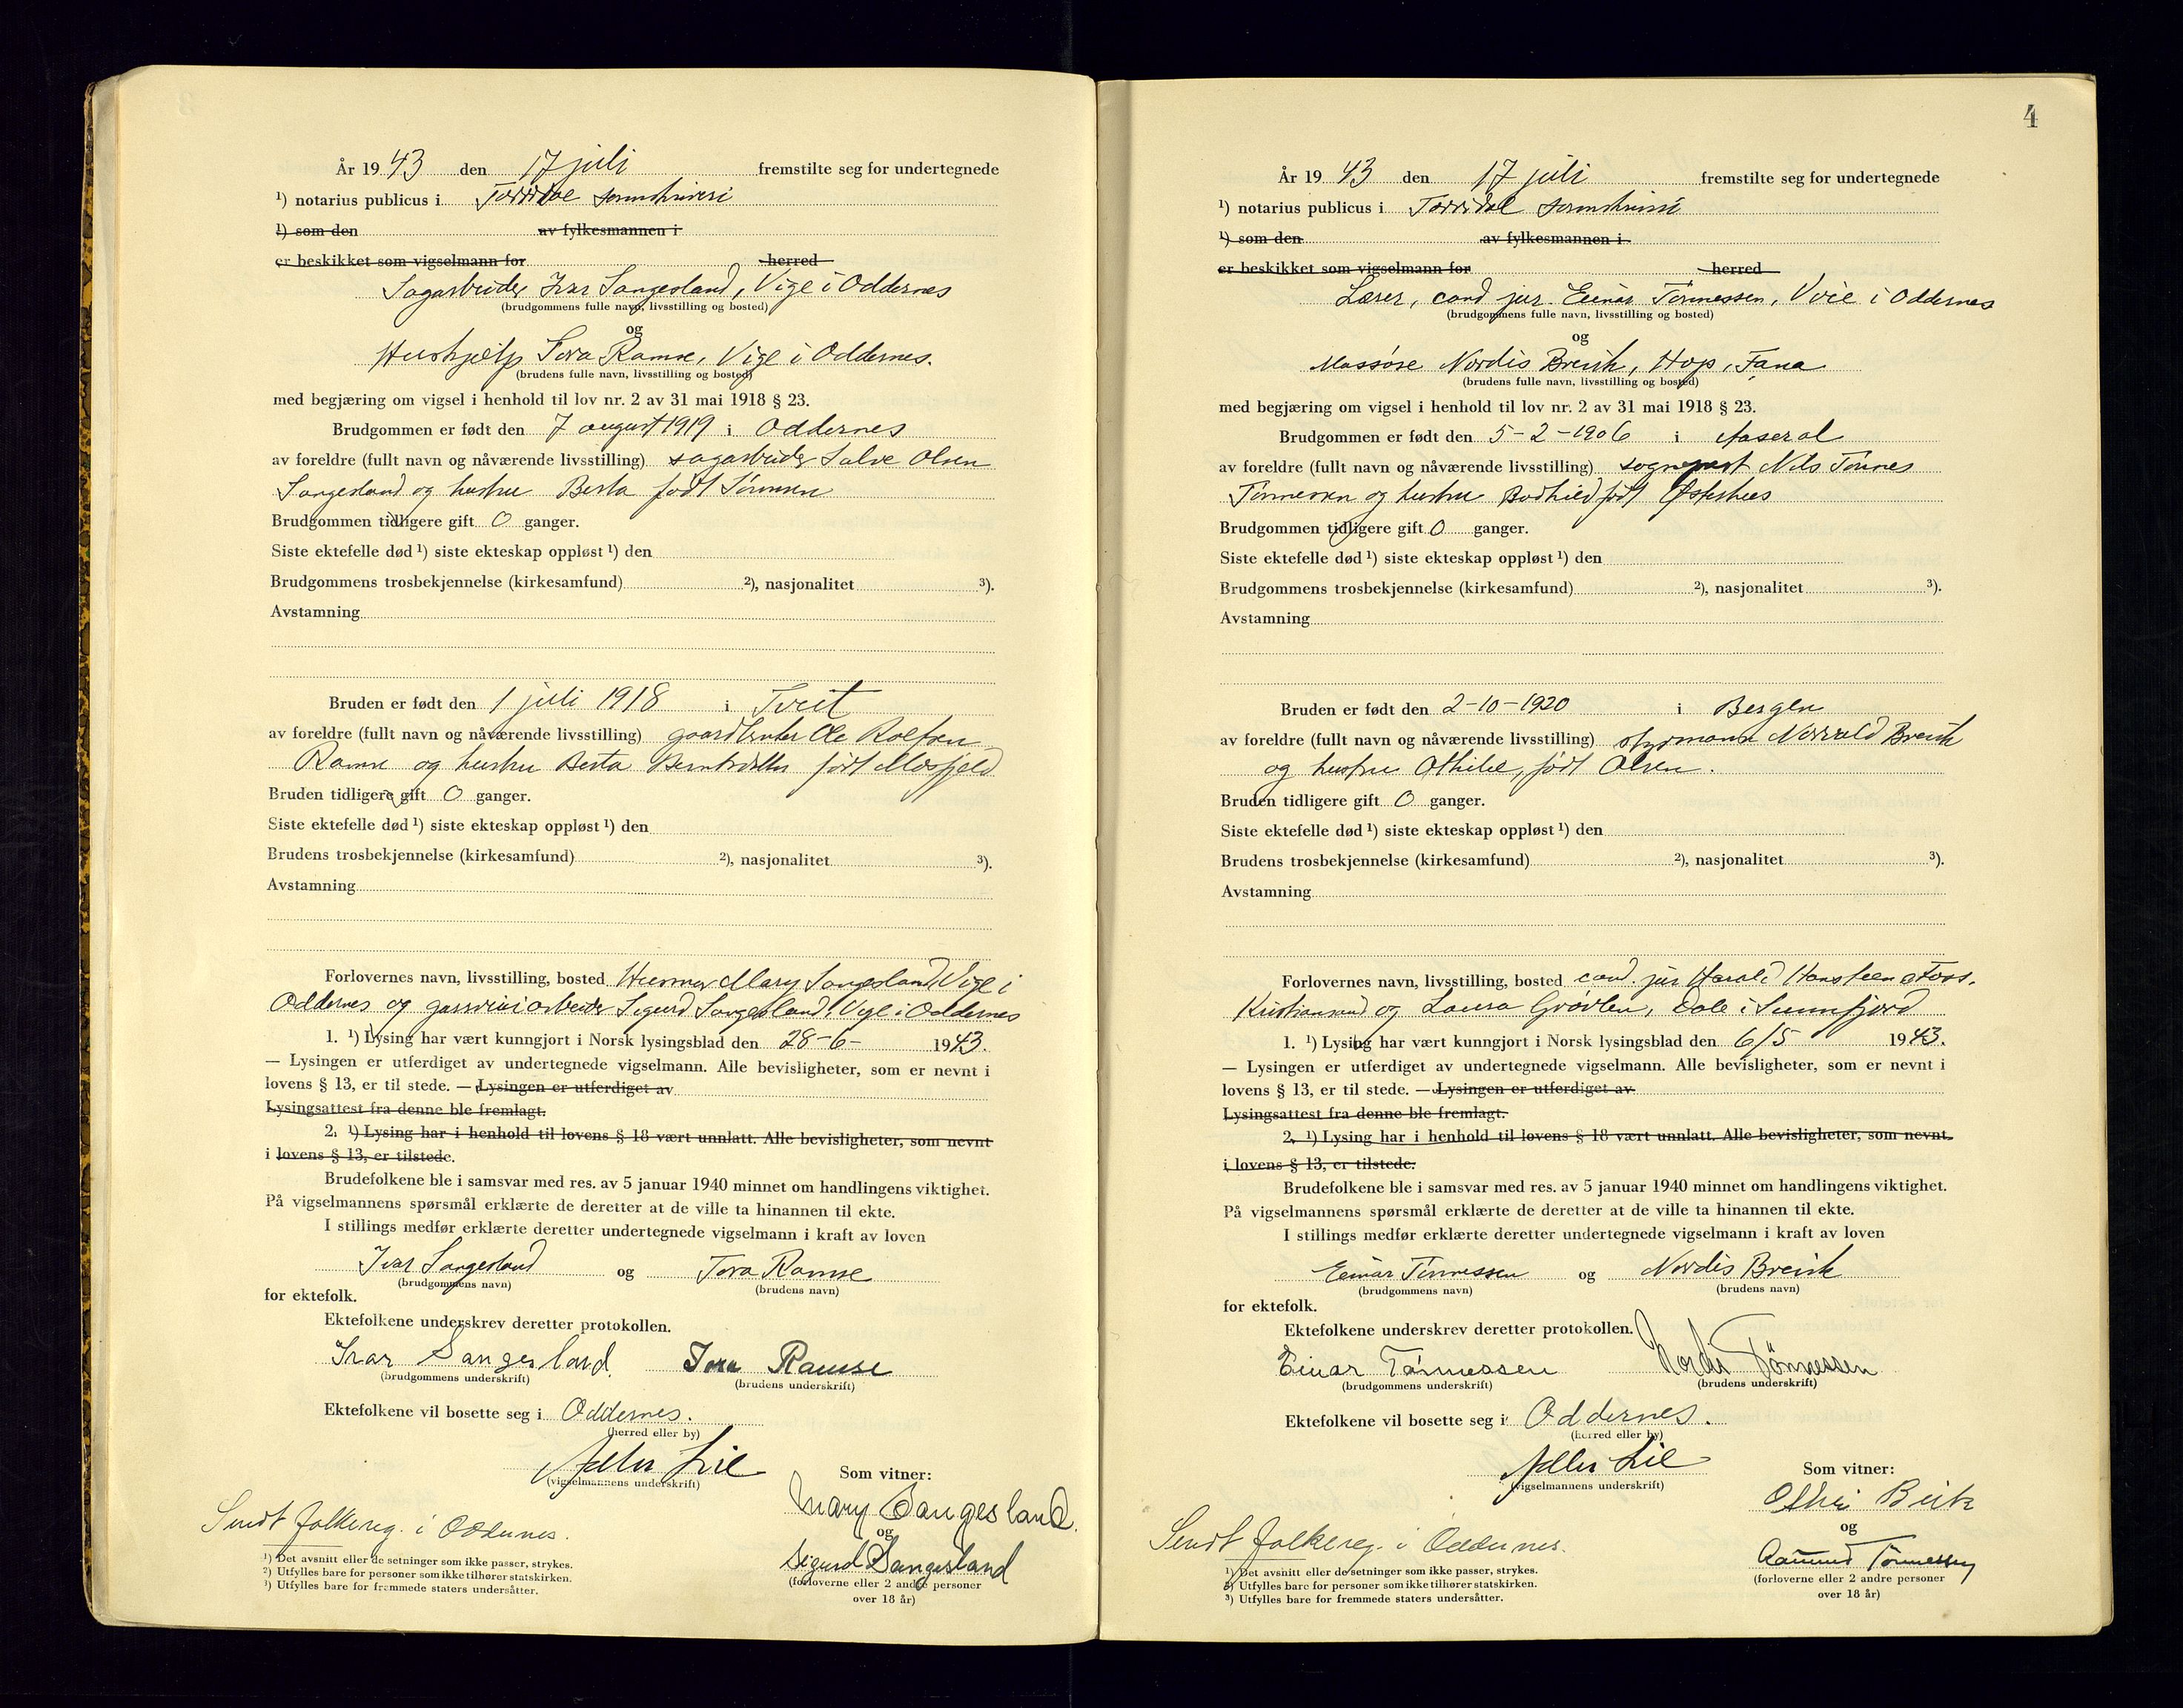 År 19 43 den 17 juli fremstilte seg for undertegnede
¹) notarius publicus i Torridal sorenskriveri
¹) som den av fylkesmannen i
er beskikket som vigselmann for herred
Sagarbeider Ivar Sangesland, Vige i Oddernes
(brudgommens fulle navn, livsstilling og bosted)
og
Hushjelp Tora Ramse, Vige i Oddernes.
(brudens fulle navn, livsstilling og bosted)
med begjæring om vigsel i henhold til lov nr. 2 av 31 mai 1918 § 23.
Brudgommen er født den 7 august 1919 i Oddernes
av foreldre (fullt navn og nåværende livsstilling) sagarbeider Salve Olsen
Sangesland og hustru Berta født
Brudgommen tidligere gift 0 ganger.
Siste ektefelle død ¹) siste ekteskap oppløst ¹) den
Brudgommens trosbekjennelse (kirkesamfund) ²), nasjonalitet ³).
Avstamning
Bruden er født den 1 juli 1918 i Tveit
av foreldre (fullt navn og nåværende livsstilling) gaardbruker Ole Rolfsen
Ramse og hustru Berta født Mosfjeld
Bruden tidligere gift 0 ganger.
Siste ektefelle død ¹) siste ekteskap oppløst ¹) den
Brudens trosbekjennelse (kirkesamfund) ²), nasjonalitet ³).
Avstamning
Forlovernes navn, livsstilling, bosted Husmor Mary Sangesland, Vige i
Oddernes og Sigurd Sangesland, Vige i Oddernes
1. ¹) Lysing har vært kunngjort i Norsk lysingsblad den 28-6- 1943.
— Lysingen er utferdiget av undertegnede vigselmann. Alle bevisligheter, som er nevnt i
lovens § 13, er til stede. — Lysingen er utferdiget av
Lysingsattest fra denne ble fremlagt.
2. ¹) Lysing har i henhold til lovens § 18 vært unnlatt. Alle bevisligheter, som nevnt
i lovens § 13, er tilstede.
Brudefolkene ble i samsvar med res. av 5 januar 1940 minnet om handlingens viktighet.
På vigselmannens spørsmål erklærte de deretter at de ville ta hinannen til ekte.
I stillings medfør erklærte deretter undertegnede vigselmann i kraft av loven
Ivar Sangesland og Tora Ramse
(brudgommens navn) (brudens navn)
for ektefolk.
Ektefolkene underskrev deretter protokollen.
Ivar Sangesland. Tora Ramse
(brudgommens underskrift) (brudens underskrift)
Ektefolkene vil bosette seg i Oddernes.
(herred eller by)
Adler Lie
(vigselmannens underskrift)
Som vitner:
Mary Sangesland.
og
Sigurd Sangesland
(forloverne eller 2 andre personer
over 18 år)
Sendt folkereg. i Oddernes.
¹) Det avsnitt eller de setninger som ikke passer, strykes.
²) Utfylles bare for personer som ikke tilhører statskirken.
³) Utfylles bare for fremmede staters undersåtter.
4
År 19 43 den 17 juli fremstilte seg for undertegnede
¹) notarius publicus i Torridal sorenskriveri
¹) som den av fylkesmannen i
er beskikket som vigselmann for herred
Lærer, cand jur. Einar Tönnessen, Voie i Oddernes
(brudgommens fulle navn, livsstilling og bosted)
og
Massøse Nordis Breivik, Hop, Fana
(brudens fulle navn, livsstilling og bosted)
med begjæring om vigsel i henhold til lov nr. 2 av 31 mai 1918 § 23.
Brudgommen er født den 5-2-1906 i Aaseral
av foreldre (fullt navn og nåværende livsstilling) sogneprest Nils Tönnes
Tönnessen og hustru Bodhild født
Brudgommen tidligere gift 0 ganger.
Siste ektefelle død ¹) siste ekteskap oppløst ¹) den
Brudgommens trosbekjennelse (kirkesamfund) ²), nasjonalitet ³).
Avstamning
Bruden er født den 2-10-1920 i Bergen
av foreldre (fullt navn og nåværende livsstilling) styrmann Norvald Breivik
og hustru Othilie, født Olsen.
Bruden tidligere gift 0 ganger.
Siste ektefelle død ¹) siste ekteskap oppløst ¹) den
Brudens trosbekjennelse (kirkesamfund) ²), nasjonalitet ³).
Avstamning
Forlovernes navn, livsstilling, bosted cand. jur Harald Hansteen Foss,
Kristiansand og Laura Grövlen, Dale i Sunnfjord
1. ¹) Lysing har vært kunngjort i Norsk lysingsblad den 6/5 1943.
— Lysingen er utferdiget av undertegnede vigselmann. Alle bevisligheter, som er nevnt i
lovens § 13, er til stede. — Lysingen er utferdiget av
Lysingsattest fra denne ble fremlagt.
2. ¹) Lysing har i henhold til lovens § 18 vært unnlatt. Alle bevisligheter, som nevnt.
i lovens § 13, er tilstede.
Brudefolkene ble i samsvar med res. av 5 januar 1940 minnet om handlingens viktighet.
På vigselmannens spørsmål erklærte de deretter at de ville ta hinannen til ekte.
I stillings medfør erklærte deretter undertegnede vigselmann i kraft av loven
Einar Tönnessen og Nordis Breivik
(brudgommens navn) (brudens navn)
for ektefolk.
Ektefolkene underskrev deretter protokollen.
Einar Tönnessen Nordis Tönnessen
(brudgommens underskrift) (brudens underskrift)
Ektefolkene vil bosette seg i Oddernes.
(herred eller by)
Adler Lie
(vigselmannens underskrift)
Som vitner:
og
Aamund Tönnessen
(forloverne eller 2 andre personer
over 18 år)
Sendt folkereg. i Oddernes.
¹) Det avsnitt eller de setninger som ikke passer, strykes.
²) Utfylles bare for personer som ikke tilhører statskirken.
³) Utfylles bare for fremmede staters undersåtter.